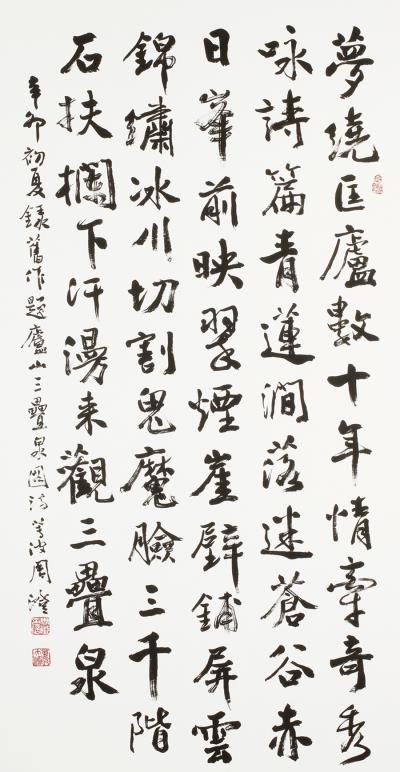 夢繞匡廬數十年情牽奇秀
咏詩篇青蓮澗落迷蒼谷赤
日峯前映翠煙崖壁鋪屏雲
錦繡冰川切割鬼魔臉三千階
石扶欄下汗漫來觀三疊泉
辛卯初夏錄舊作題廬山三疊泉圖詩蓴波周澄